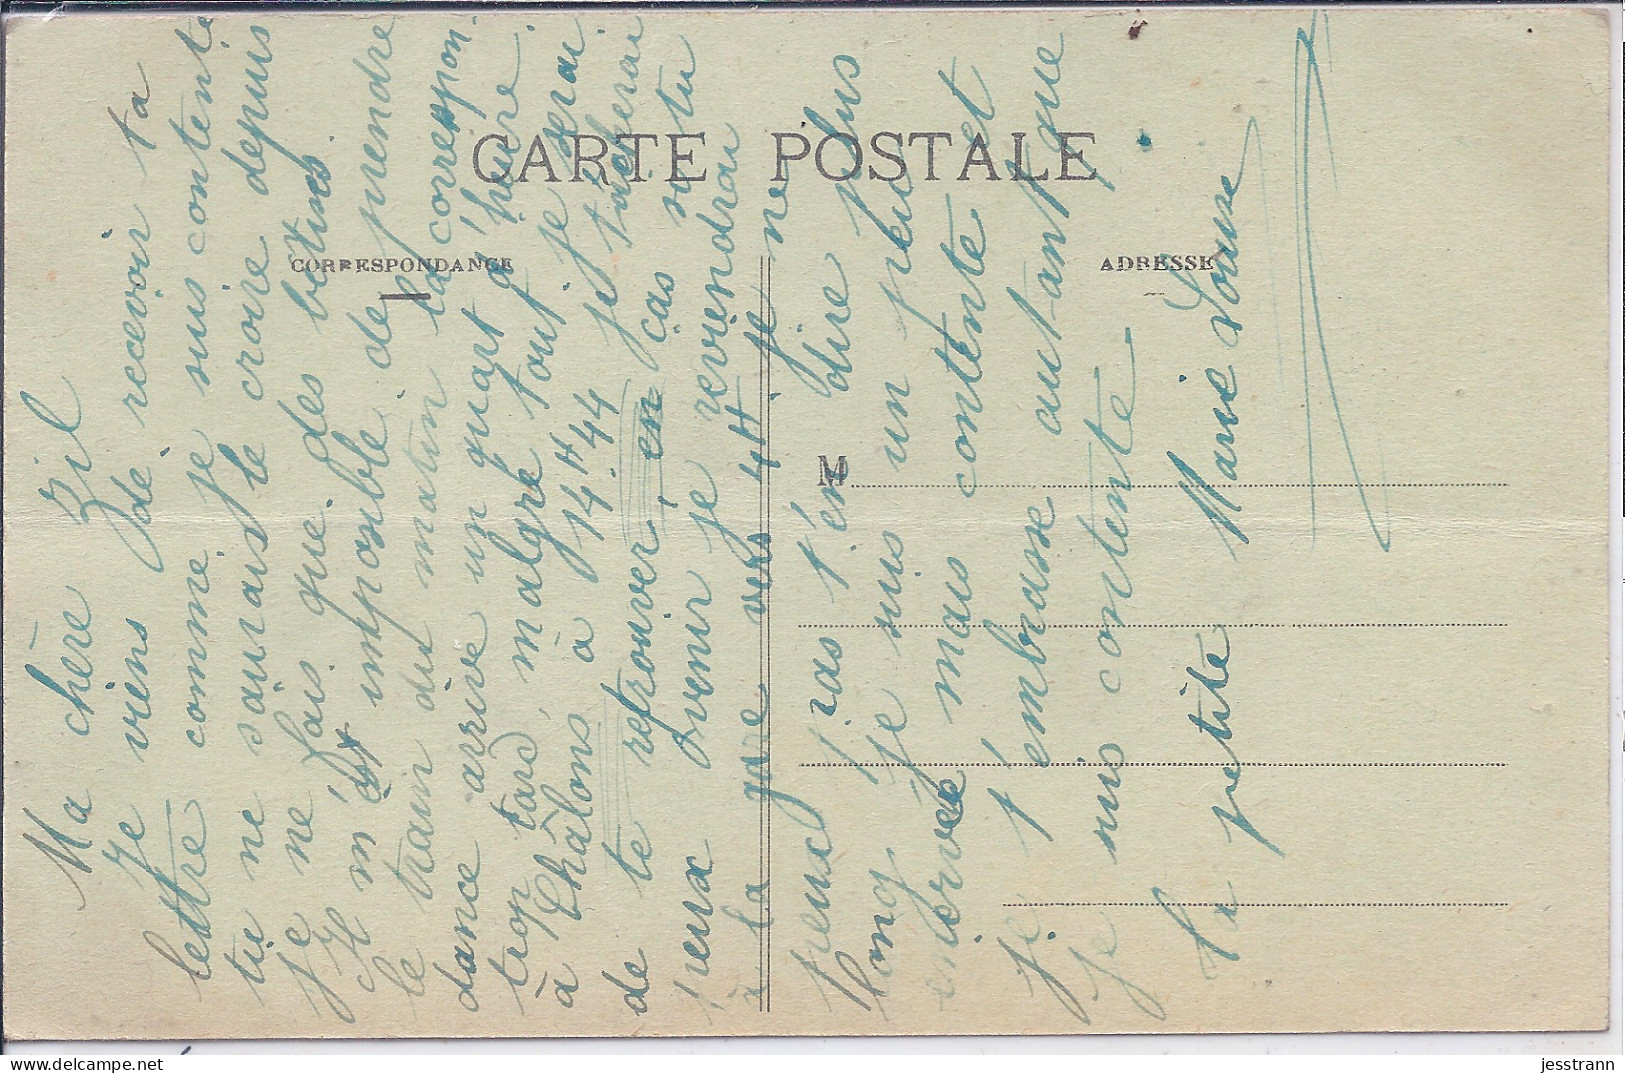 CARTE POSTALE
CORRESPONDANCE
ADRESSE
M
Ma chère Zil
Je viens de recevoir ta
lettre comme je suis contente
tu ne saurais le croire depuis
je ne fais que des bêtises.
Il m'est impossible de prendre
le train du matin la correspon-
dance arrive un quart d'heure
trop tard, malgré tout je serai
à Châlons à 14H44 je tâcherai
de te retrouver, en cas si tu
peux venir je reviendrai
à la gare vers 4H. je ne
peux pas t'en dire plus
long, je suis un peu
énervée mais contente et
je t'embrasse autant que
je suis contente.
Ta petite Marie Louise
jesstrann